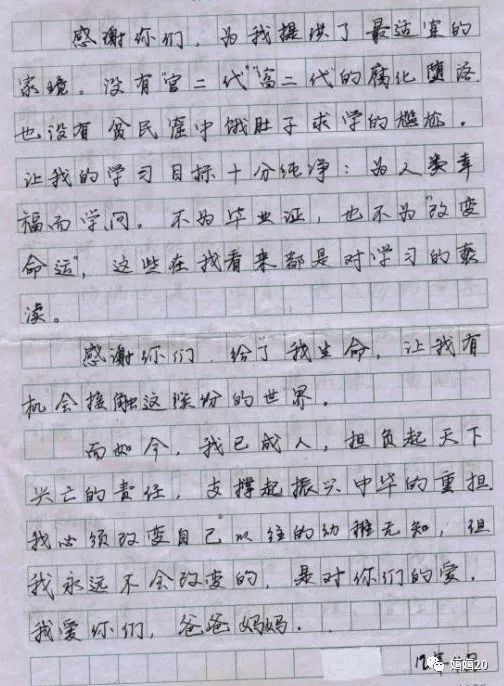 感谢你们，为我提供了最适宜的
家境。没有“官二代”“富二代”的腐化堕落
也没有贫民窟中饿肚子求学的尴尬，
让我的学习目标十分纯净：为人类幸
福而学问。不为毕业证，也不为“改变
命运”，这些在我看来都是对学习的亵
渎。
感谢你们，给了我生命，让我有
机会接触这缤纷的世界。
而如今，我已成人，担负起天下
兴亡的责任，支撑起振兴中华的重担
我必须改变自己以往的幼稚无知，但
我永远不会改变的，是对你们的爱。
我爱你们，爸爸妈妈。
媜媜20